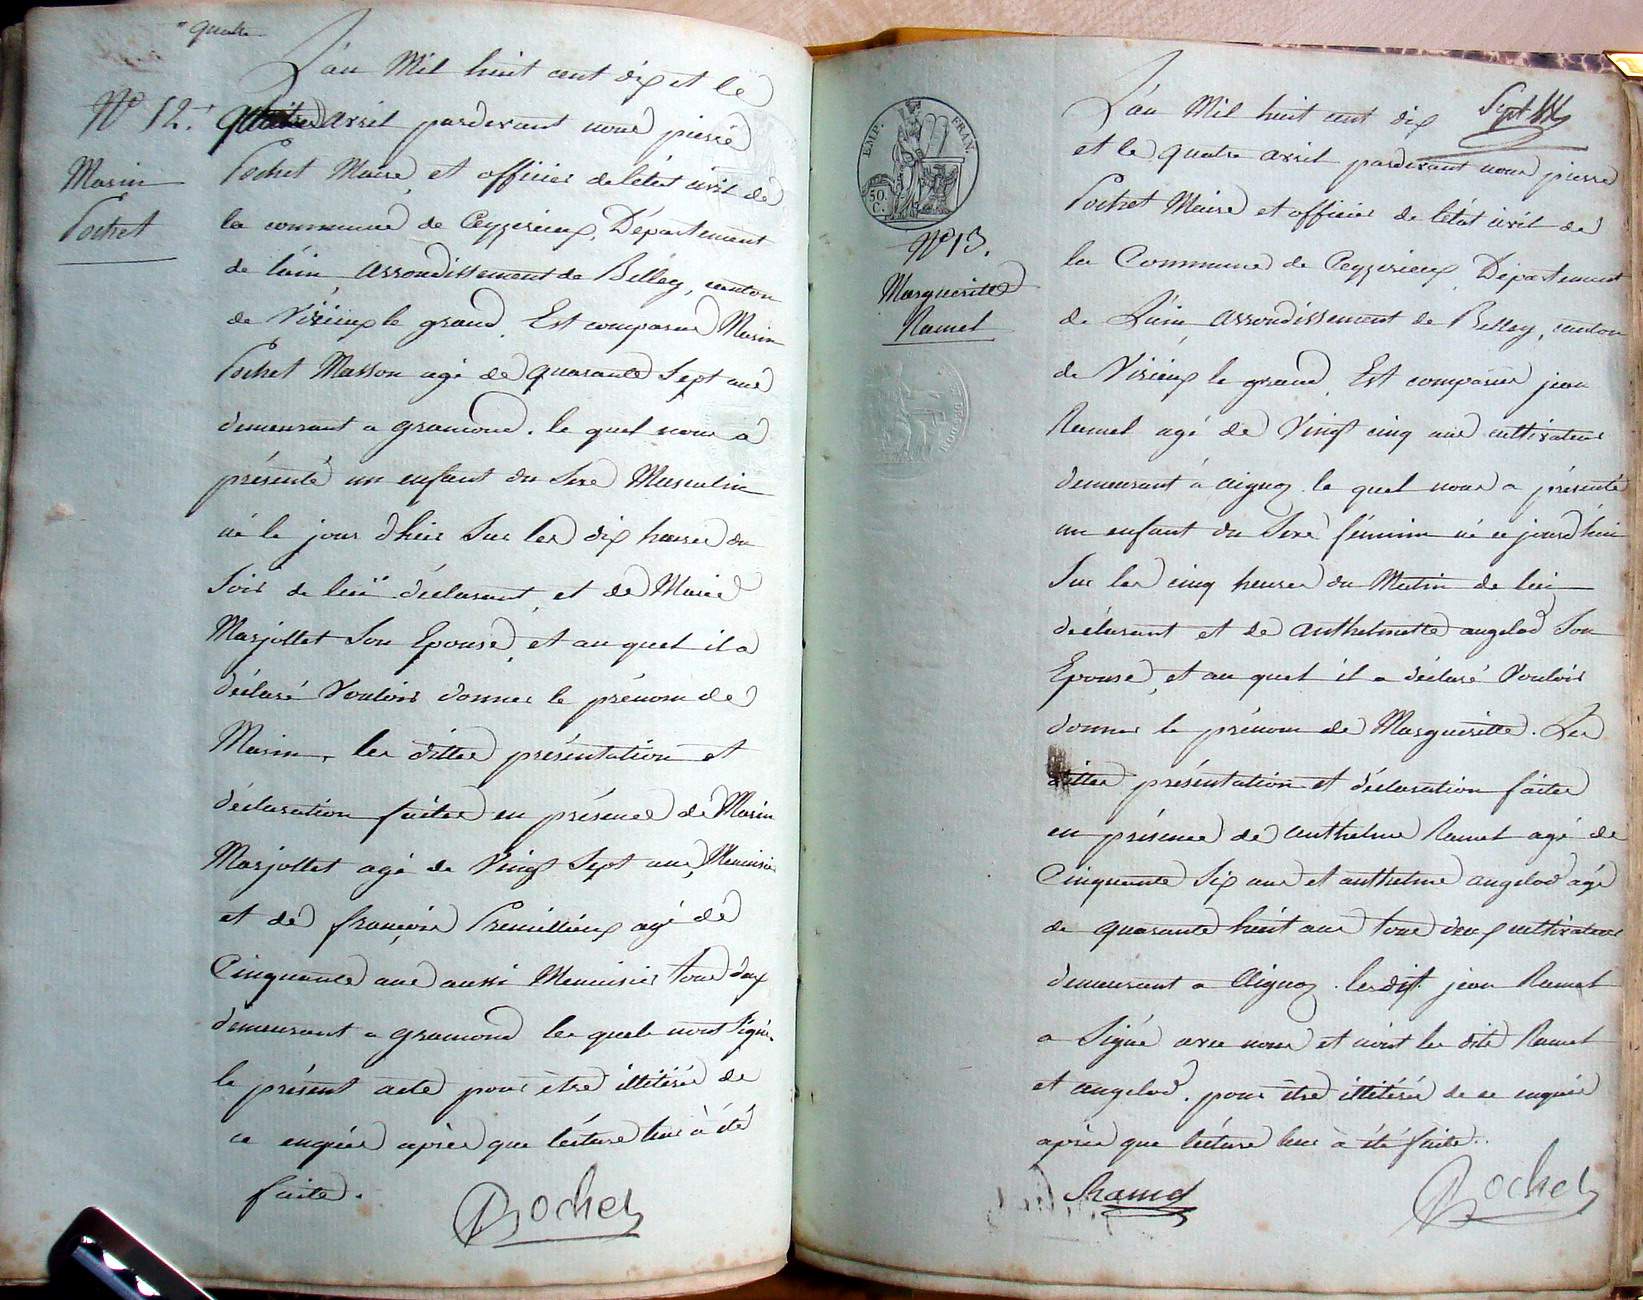 quatre
L'an Mil huit cent dix et le
N° 12.
quatre avril pardevant nous pierre
Marin
Pochet
Pochet Maire, et officier de l'état civil de
la commune de Ceyzerieux, Département
de l'ain, arrondissement de Belley, canton
de Virieux le grand, Est comparu Marin
Pochet Masson agé de quarante Sept ans
demeurant a gramond. le quel nous a
présenté un enfant du Sexe Masculin
né le jour d'hier Sur les dix heures du
Soir de lui déclarant, et de Marie
Marjollet Son Epouse, et au quel il a
déclaré Vouloir donner le prénom de
Marin, les dittes présentation et
déclaration faites en présence de Marin
Marjollet agé de Vingt Sept ans, Menuisier
et de françois Premillieux agé de
Cinquante ans aussi Menuisier tous deux
demeurant a gramond les quels n'ont Signé
le présent acte pour être illitérés de
ce enquis après que lécture leur à été
faite.
Pochet
EMP. FRAN.
50.
C.
N° 13.
Margueritte
Ramel
L'an Mil huit cent dix
Sept
et le quatre avril pardevant nous pierre
Pochet Maire et officier de l'état civil de
la Commune de Ceyzerieux, Département
de L'ain, arrondissement de Belley, canton
de Virieux le grand, Est comparu jean
Ramel agé de Vingt cinq ans cultivateur
demeurant à aignoz le quel nous a présenté
un enfant du Sexe féminin né ce jourd'hui
Sur les cinq heures du Matin de lui
déclarant et de anthelmette angelod Son
Epouse, et au quel il a déclaré Vouloir
donner le prénom de Margueritte. Les
dittes présentation et déclaration faites
en présence de anthelme Ramel agé de
Cinquante Six ans et anthelme angelod agé
de quarante huit ans tous deux cultivateurs
demeurant a Aignoz. ledit jean Ramel
a Signé avec nous et non les dits Ramel
et angelod. pour être illitérés de ce enquis
après que lécture leur à été faite.
Ramel
Pochet